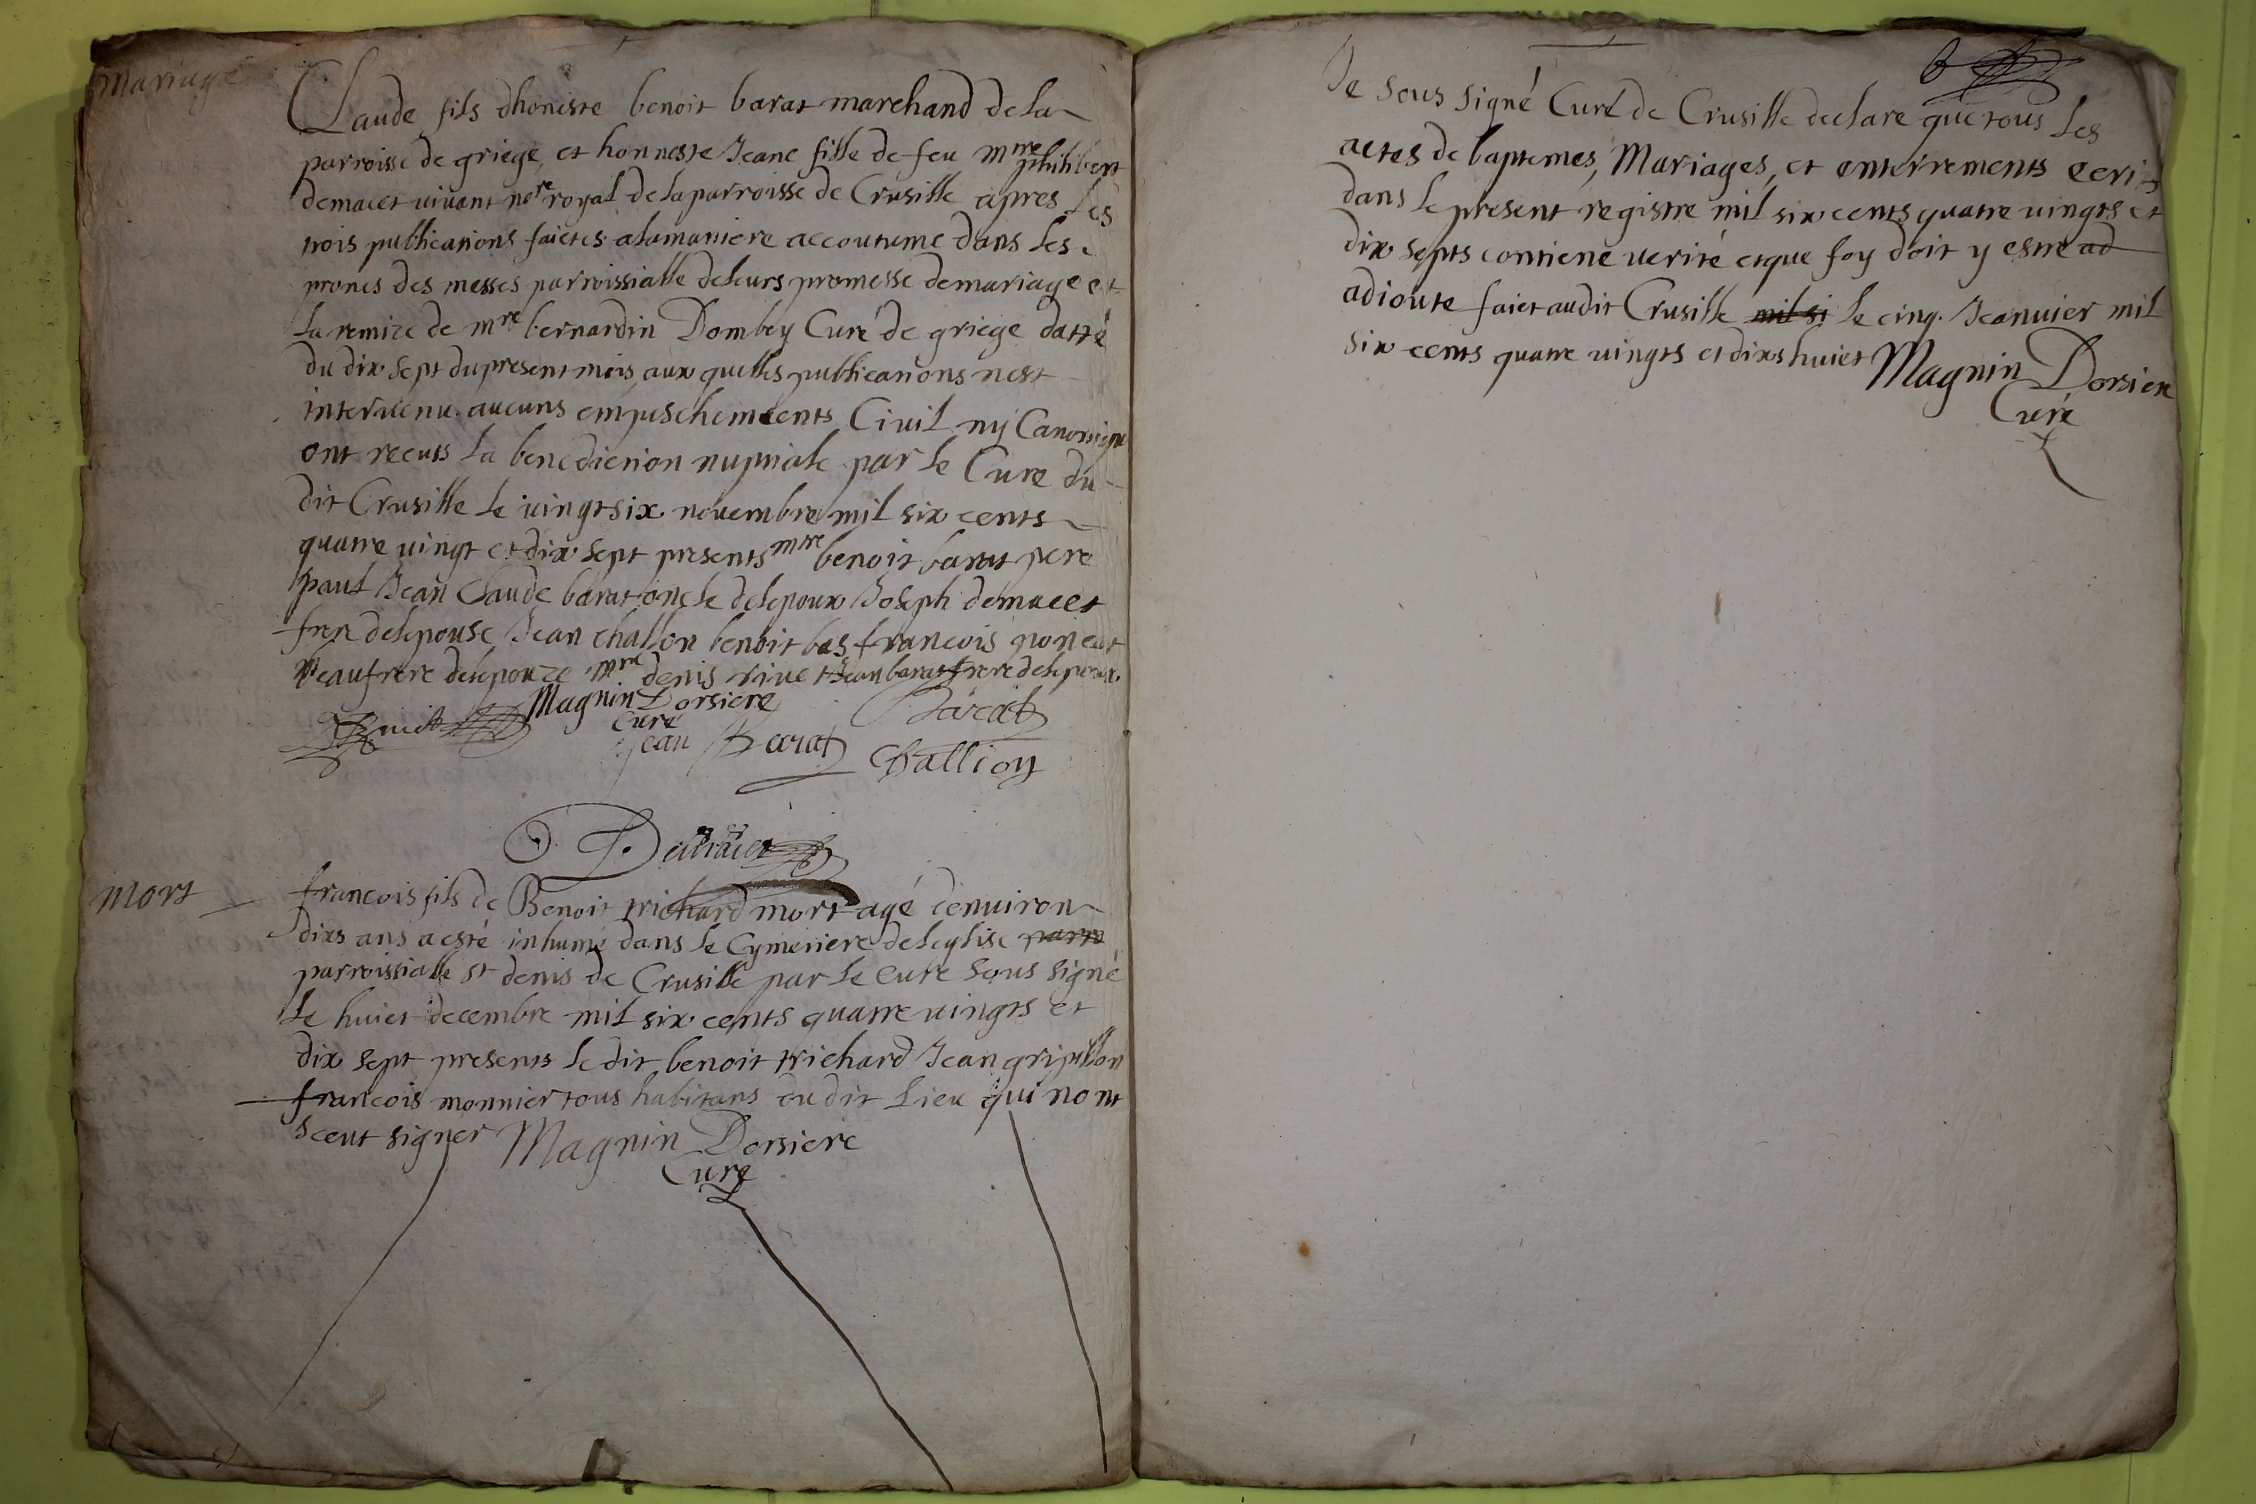 Mariage
Claude fils dhoneste benoit barat marchand de la
parroisse de griege, et honneste Jeane fille de feu mre philibert
demacet vivant nore royal de la parroisse de Crusille apres les
trois publications faictes a la maniere accoutume dans les
prones des messes parroissialle de leurs promesse de mariage et
la remize de mre bernardin Dombey Curé de griege datté
du dix sept du present mois, aux quelles publications nest
intervenu aucuns empeschements Civil ny Canonique
ont receus la benediction nuptiale par le Cure du
dit Crusille le vingt six novembre mil six cents
quatre vingt et dix sept presents mre benoit barat pere
paul Jean Claude barat oncle de lepoux Joseph demacet
frere de lepouse Jean challon benoit bas francois
beaufrere de lepouze mre denis rivet Jean barat frere de lepoux
Magnin Dorsiere
Curé
Barat
Jean Barat
Challion
mort
francois fils de Benoit trichard mort agé denviron
dixs ans a esté inhumé dans le Cymetiere de leglise parro
parroissialle st denis de Crusille par le Curé sous signé
le huict decembre mil six cents quatre vingts et
dix sept presents le dit benoit trichard Jean gripillon
francois monnier tous habitans du dit lieu qui nont
sceut signer Magnin Dorsiere
Curé
Je sous signé Curé de Crusille declare que tous les
actes de baptemes, Mariages, et enterrements ecrit
dans le present registre mil six cents quatre vingts et
dix septs contiene verité et que foy doit y estre ad
adioute faict audit Crusille mil si le cinq Jeanvier mil
six cents quatre vingts et dixs huict Magnin Dorsiere
Curé